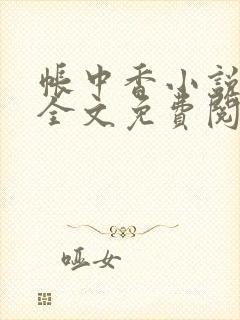 帐中香小說
全文免費閱
哑女